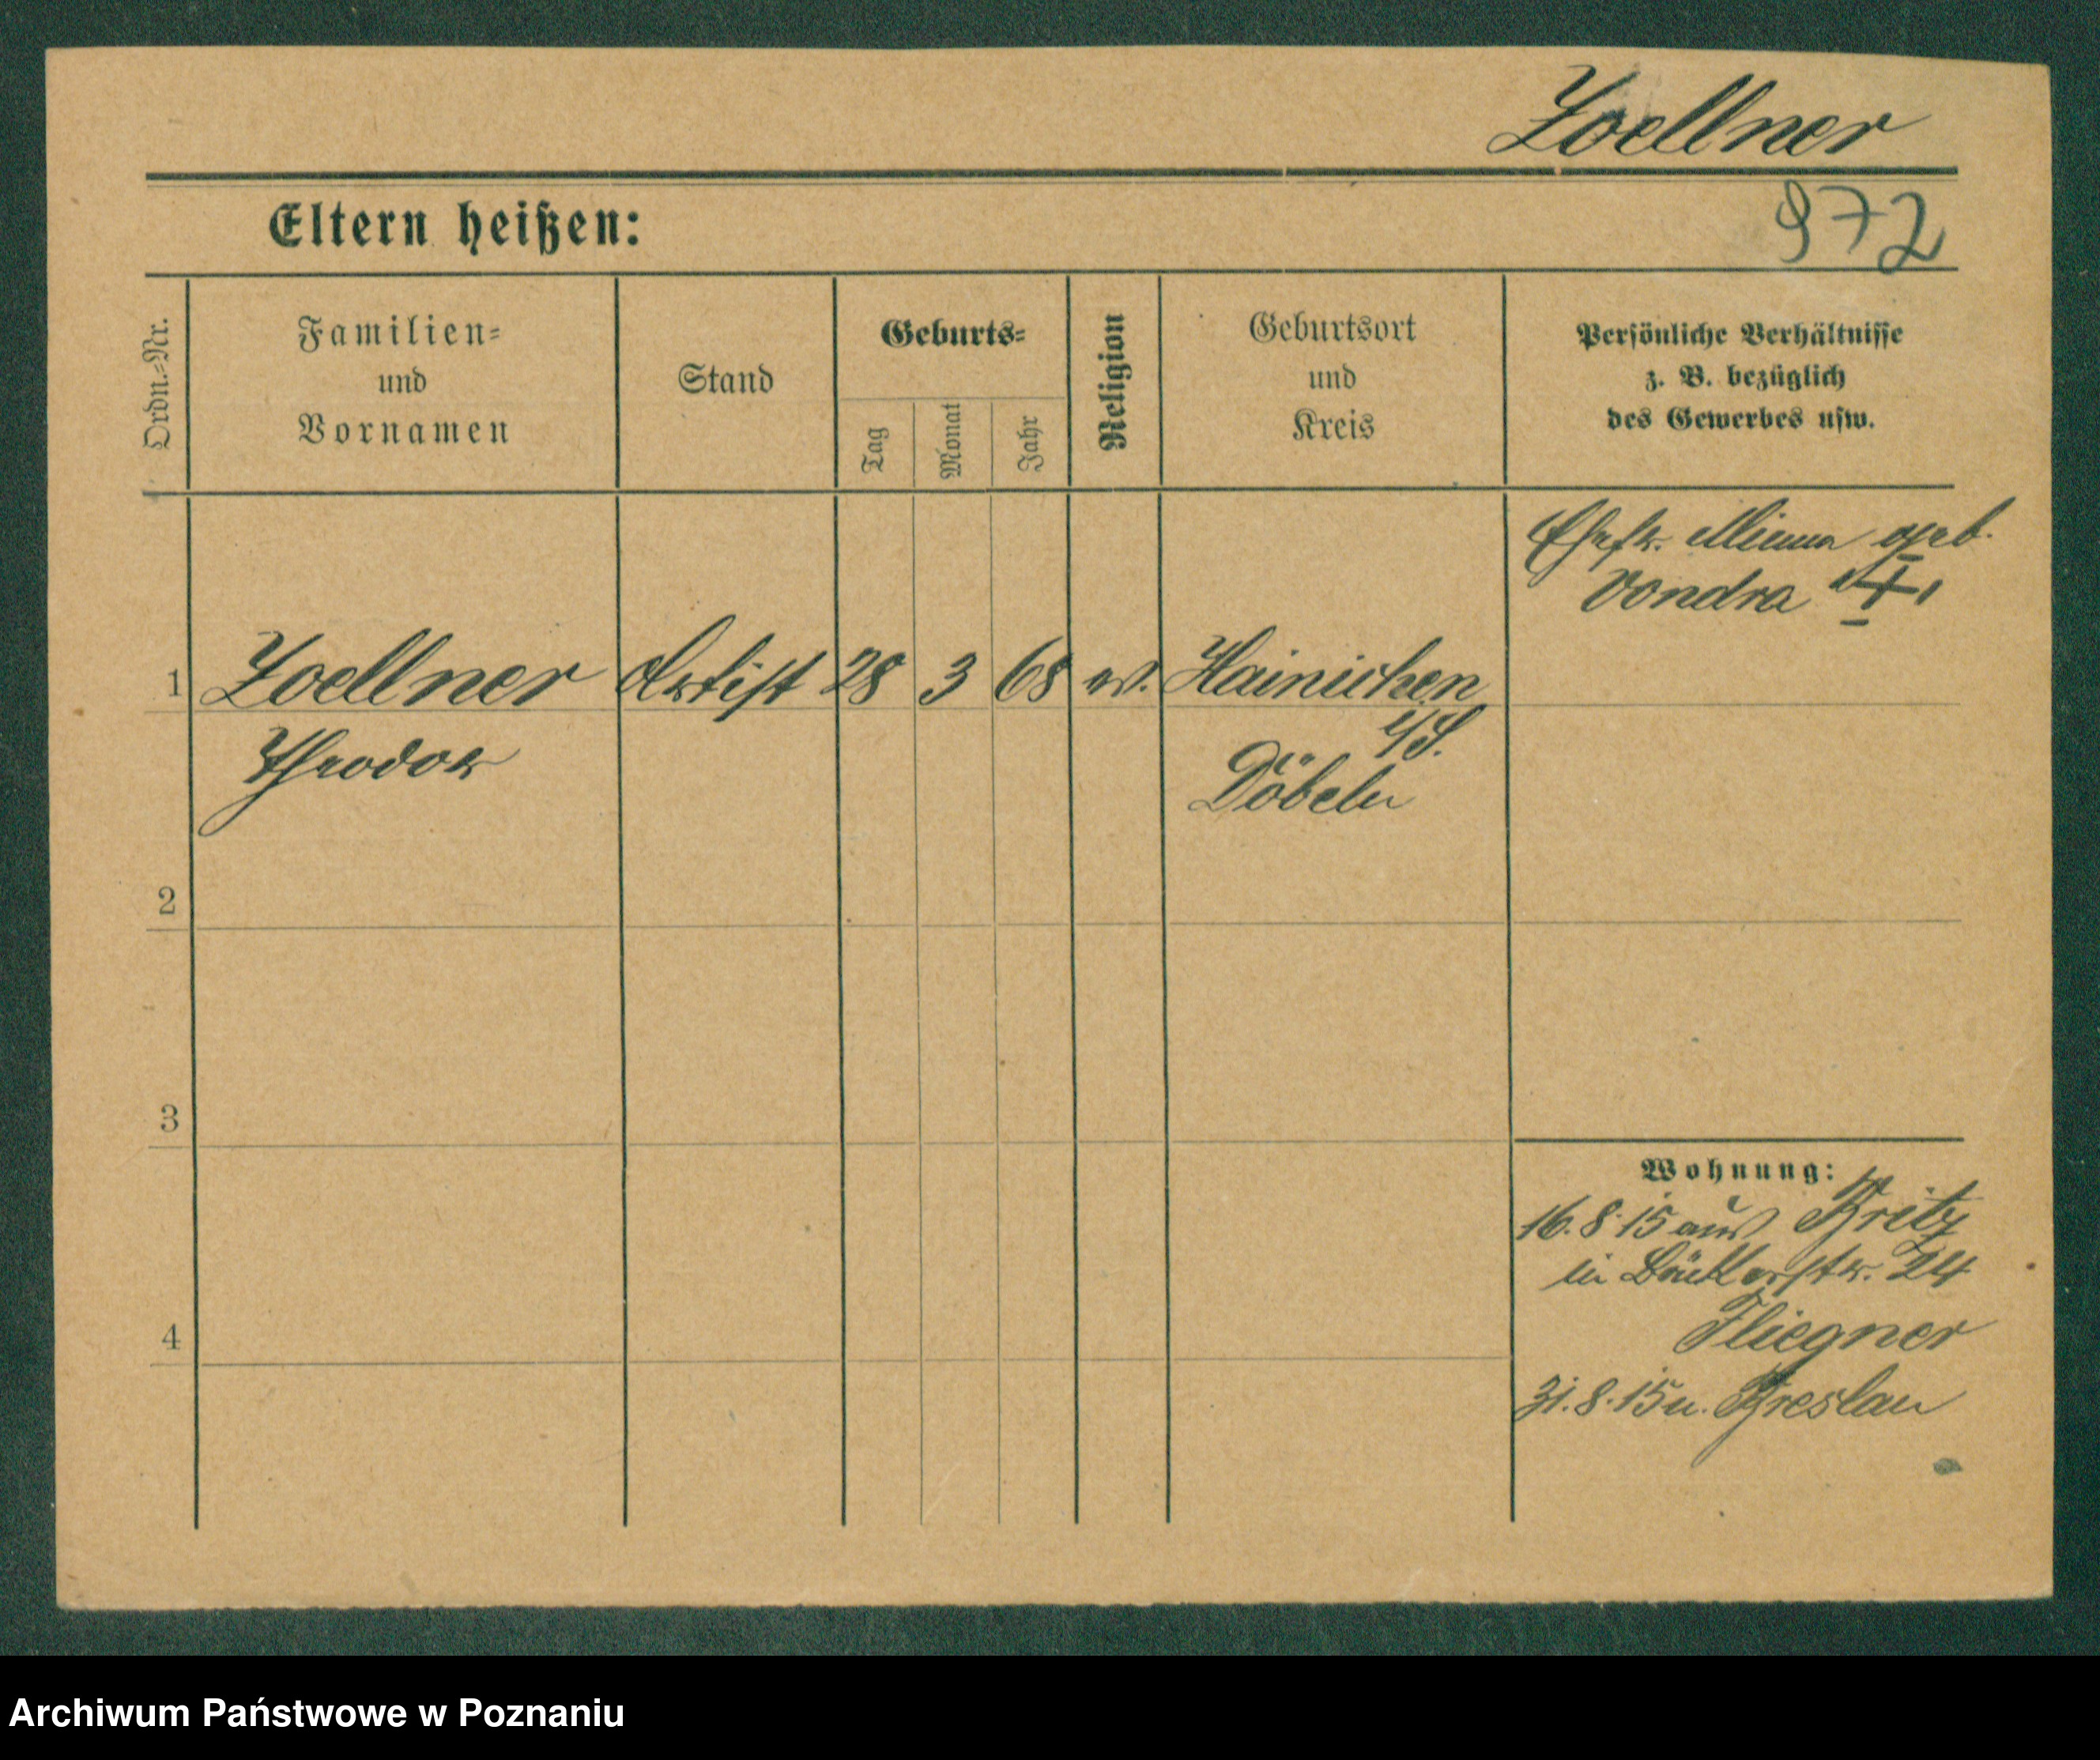 Zoellner
Eltern heißen:
972
Ordn.-Nr.
Familien-
und
Vornamen
Stand
Geburts-
Tag
Monat
Jahr
Religion
Geburtsort
und
Kreis
Persönliche Verhältnisse
z. B. bezüglich
des Gewerbes usw.
Ehefr. Minna geb.
Vondra
1 Zoellner Artist 28 3 68 ev. Hainichen
Theodor
i/S.
Döbeln
2
3
4
Wohnung:
16.8.15 aus Britz
in Bäckerstr. 24
Fliegner
31.8.15 n. Breslau
Archiwum Państwowe w Poznaniu